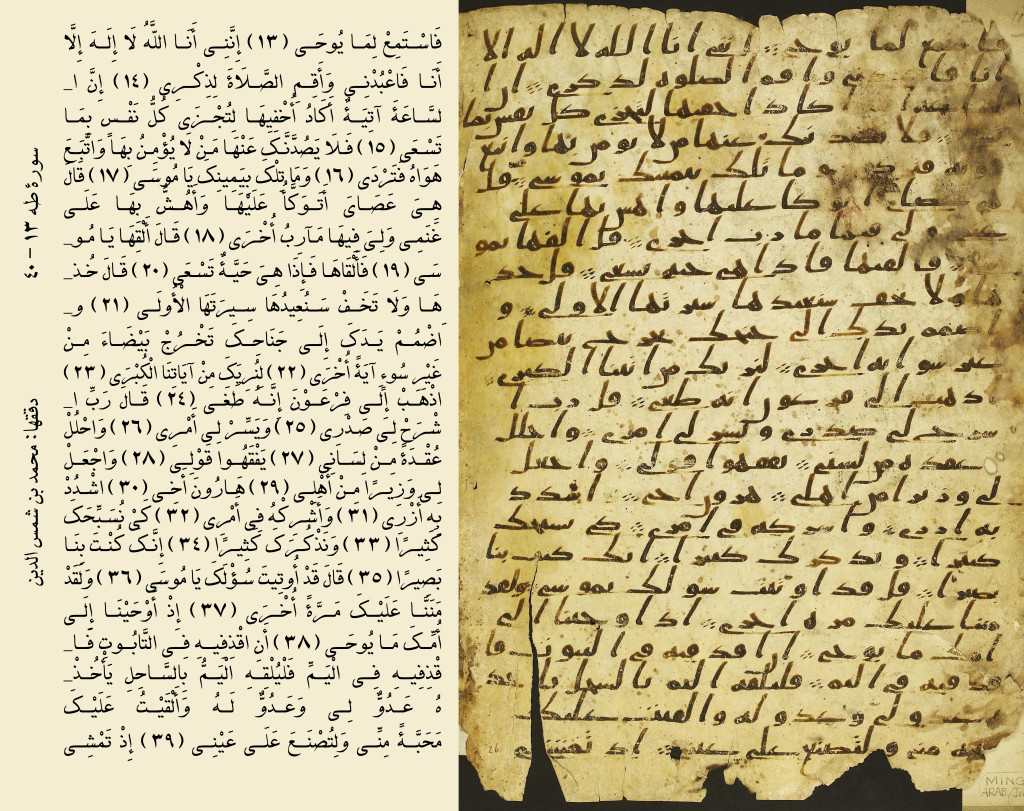 فَاسْتَمِعْ لِمَا يُوحَى (١٣) إِنَّنِى أَنَا اللَّهُ لَا إِلَهَ إِلَّا
أَنَا فَاعْبُدْنِى وَأَقِمِ الصَّلَاةَ لِذِكْرِى (١٤) إِنَّ ا
لسَّاعَةَ آتِيَةٌ أَكَادُ أُخْفِيهَا لِتُجْزَى كُلُّ نَفْسٍ بِمَا
تَسْعَى (١٥) فَلَا يَصُدَّنَّكَ عَنْهَا مَنْ لَا يُؤْمِنُ بِهَا وَاتَّبَعَ
هَوَاهُ فَتَرْدَى (١٦) وَمَا تِلْكَ بِيَمِينِكَ يَا مُوسَى (١٧) قَالَ
هِىَ عَصَاىَ أَتَوَكَّأُ عَلَيْهَا وَأَهُشُّ بِهَا عَلَى
غَنَمِى وَلِىَ فِيهَا مَآرِبُ أُخْرَى (١٨) قَالَ أَلْقِهَا يَا مُو
سَى (١٩) فَأَلْقَاهَا فَإِذَا هِىَ حَيَّةٌ تَسْعَى (٢٠) قَالَ خُذ
هَا وَلَا تَخَفْ سَنُعِيدُهَا سِيرَتَهَا الْأُولَى (٢١) و
اضْمُمْ يَدَكَ إِلَى جَنَاحِكَ تَخْرُجْ بَيْضَاءَ مِنْ
غَيْرِ سُوءٍ آيَةً أُخْرَى (٢٢) لِنُرِيَكَ مِنْ آيَاتِنَا الْكُبْرَى (٢٣)
اذْهَبْ إِلَى فِرْعَوْنَ إِنَّهُ طَغَى (٢٤) قَالَ رَبِّ ا
شْرَحْ لِى صَدْرِى (٢٥) وَيَسِّرْ لِى أَمْرِى (٢٦) وَاحْلُلْ
عُقْدَةً مِنْ لِسَانِى (٢٧) يَفْقَهُوا قَوْلِى (٢٨) وَاجْعَلْ
لِى وَزِيرًا مِنْ أَهْلِى (٢٩) هَارُونَ أَخِى (٣٠) اشْدُدْ
بِهِ أَزْرِى (٣١) وَأَشْرِكْهُ فِى أَمْرِى (٣٢) كَىْ نُسَبِّحَكَ
كَثِيرًا (٣٣) وَنَذْكُرَكَ كَثِيرًا (٣٤) إِنَّكَ كُنْتَ بِنَا
بَصِيرًا (٣٥) قَالَ قَدْ أُوتِيتَ سُؤْلَكَ يَا مُوسَى (٣٦) وَلَقَدْ
مَنَنَّا عَلَيْكَ مَرَّةً أُخْرَى (٣٧) إِذْ أَوْحَيْنَا إِلَى
أُمِّكَ مَا يُوحَى (٣٨) أَنِ اقْذِفِيهِ فِى التَّابُوتِ فَا
قْذِفِيهِ فِى الْيَمِّ فَلْيُلْقِهِ الْيَمُّ بِالسَّاحِلِ يَأْخُذْ
هُ عَدُوٌّ لِى وَعَدُوٌّ لَهُ وَأَلْقَيْتُ عَلَيْكَ
مَحَبَّةً مِنِّى وَلِتُصْنَعَ عَلَى عَيْنِى (٣٩) إِذْ تَمْشِى
سورة طه ١٣ – ٤٠
دققها: محمد بن شمس الدين
لما يوحى انى انا الله لا اله الا
الصلوه لذكرى
اخفيها لتجزى كل نفس بما
عنها من لا يومن بها واتبع
ما تلك بيمينك يموسى قل
عليها واهش بها على
فيها مارب اخرى قل القها يمو
فالقيها فاذا هى حيه تسعى قل خذ
ولا تخف سنعيدها سيرتها الاولى و
يدك الى جنحك تخرج بيضا من
غير سوا ايه اخرى لنريك من ايتنا الكبرى
اذهب الى فرعون انه طغى قل رب ا
شرح لى صدرى ويسر لى امرى واحلل
عقده من لسنى يفقهوا قولى واجعل
لى وزيرا من اهلى هرون اخى اشدد
به ازرى واشركه فى امرى كى نسبحك
كثيرا ونذكرك كثيرا انك كنت بنا
بصيرا قل قد اوتيت سولك يموسى ولقد
مننا عليك مره اخرى اذ اوحينا الى
امك ما يوحى ان اقذفيه فى التبوت فا
قذفيه فى اليم فليلقه اليم بالسحل ياخذ
عدو لى وعدو له والقيت عليك
منى ولتصنع على عينى اذ تمشى
26
MING
ARAB.